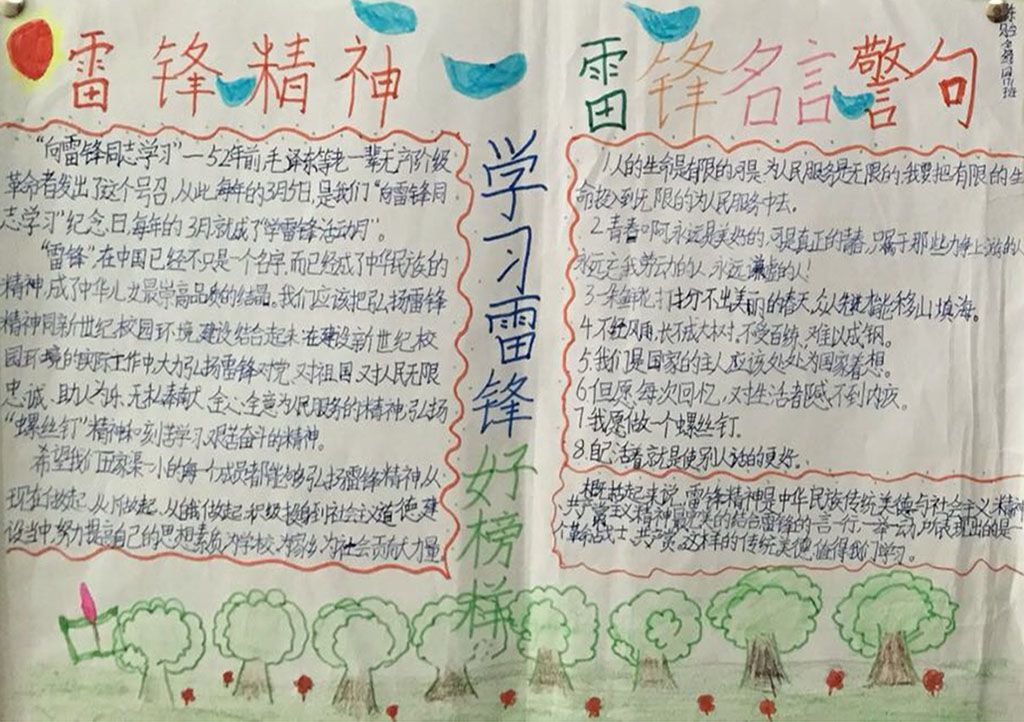 雷锋精神
"向雷锋同志学习"—52年前毛泽东等老一辈无产阶级
革命者发出了这个号召,从此每年的3月5日,是我们"向雷锋同
志学习"纪念日,每年的3月就成了"学雷锋活动月"。
"雷锋"在中国已经不只是一个名字,而已经成了中华民族的
精神,成了中华儿女最崇高品质的结晶。我们应该把弘扬雷锋
精神同新世纪校园环境建设结合起来,在建设新世纪校
园环境的实际工作中大力弘扬雷锋对党、对祖国、对人民无限
忠诚、助人为乐、无私奉献、全心全意为民服务的精神,弘扬
"螺丝钉"精神和刻苦学习、艰苦奋斗的精神。
希望我们五家渠一小的每一个成员都能够弘扬雷锋精神,从
现在做起,从小做起,从我做起,积极投身到社会主义道德建
设当中,努力提高自己的思想素质,为学校、为家乡、为社会贡献力量
学习雷锋好榜样
雷锋名言警句
1人的生命是有限的,可是为人民服务是无限的,我要把有限的生
命投入到无限的为人民服务中去。
2.青春啊,永远是美好的,可是真正的青春,只属于那些力争上游的人
永远忘我劳动的人,永远谦虚的人!
3一朵鲜花打扮不出美丽的春天,众人先进才能移山填海。
4.不经风雨,长不成大树,不受百练,难以成钢。
5.我们是国家的主人,应该处处为国家着想。
6但愿每次回忆,对生活都感不到内疚。
7我愿做一个螺丝钉。
8.自己活着就是使别人活的更好。
概括起来说,雷锋精神是中华民族传统美德与社会主义精神
共产主义精神最完美的结合,雷锋的一言一行,一举一动,所表现出的是一
个革命战士、共产党这样的传统美德,值得我们学习。